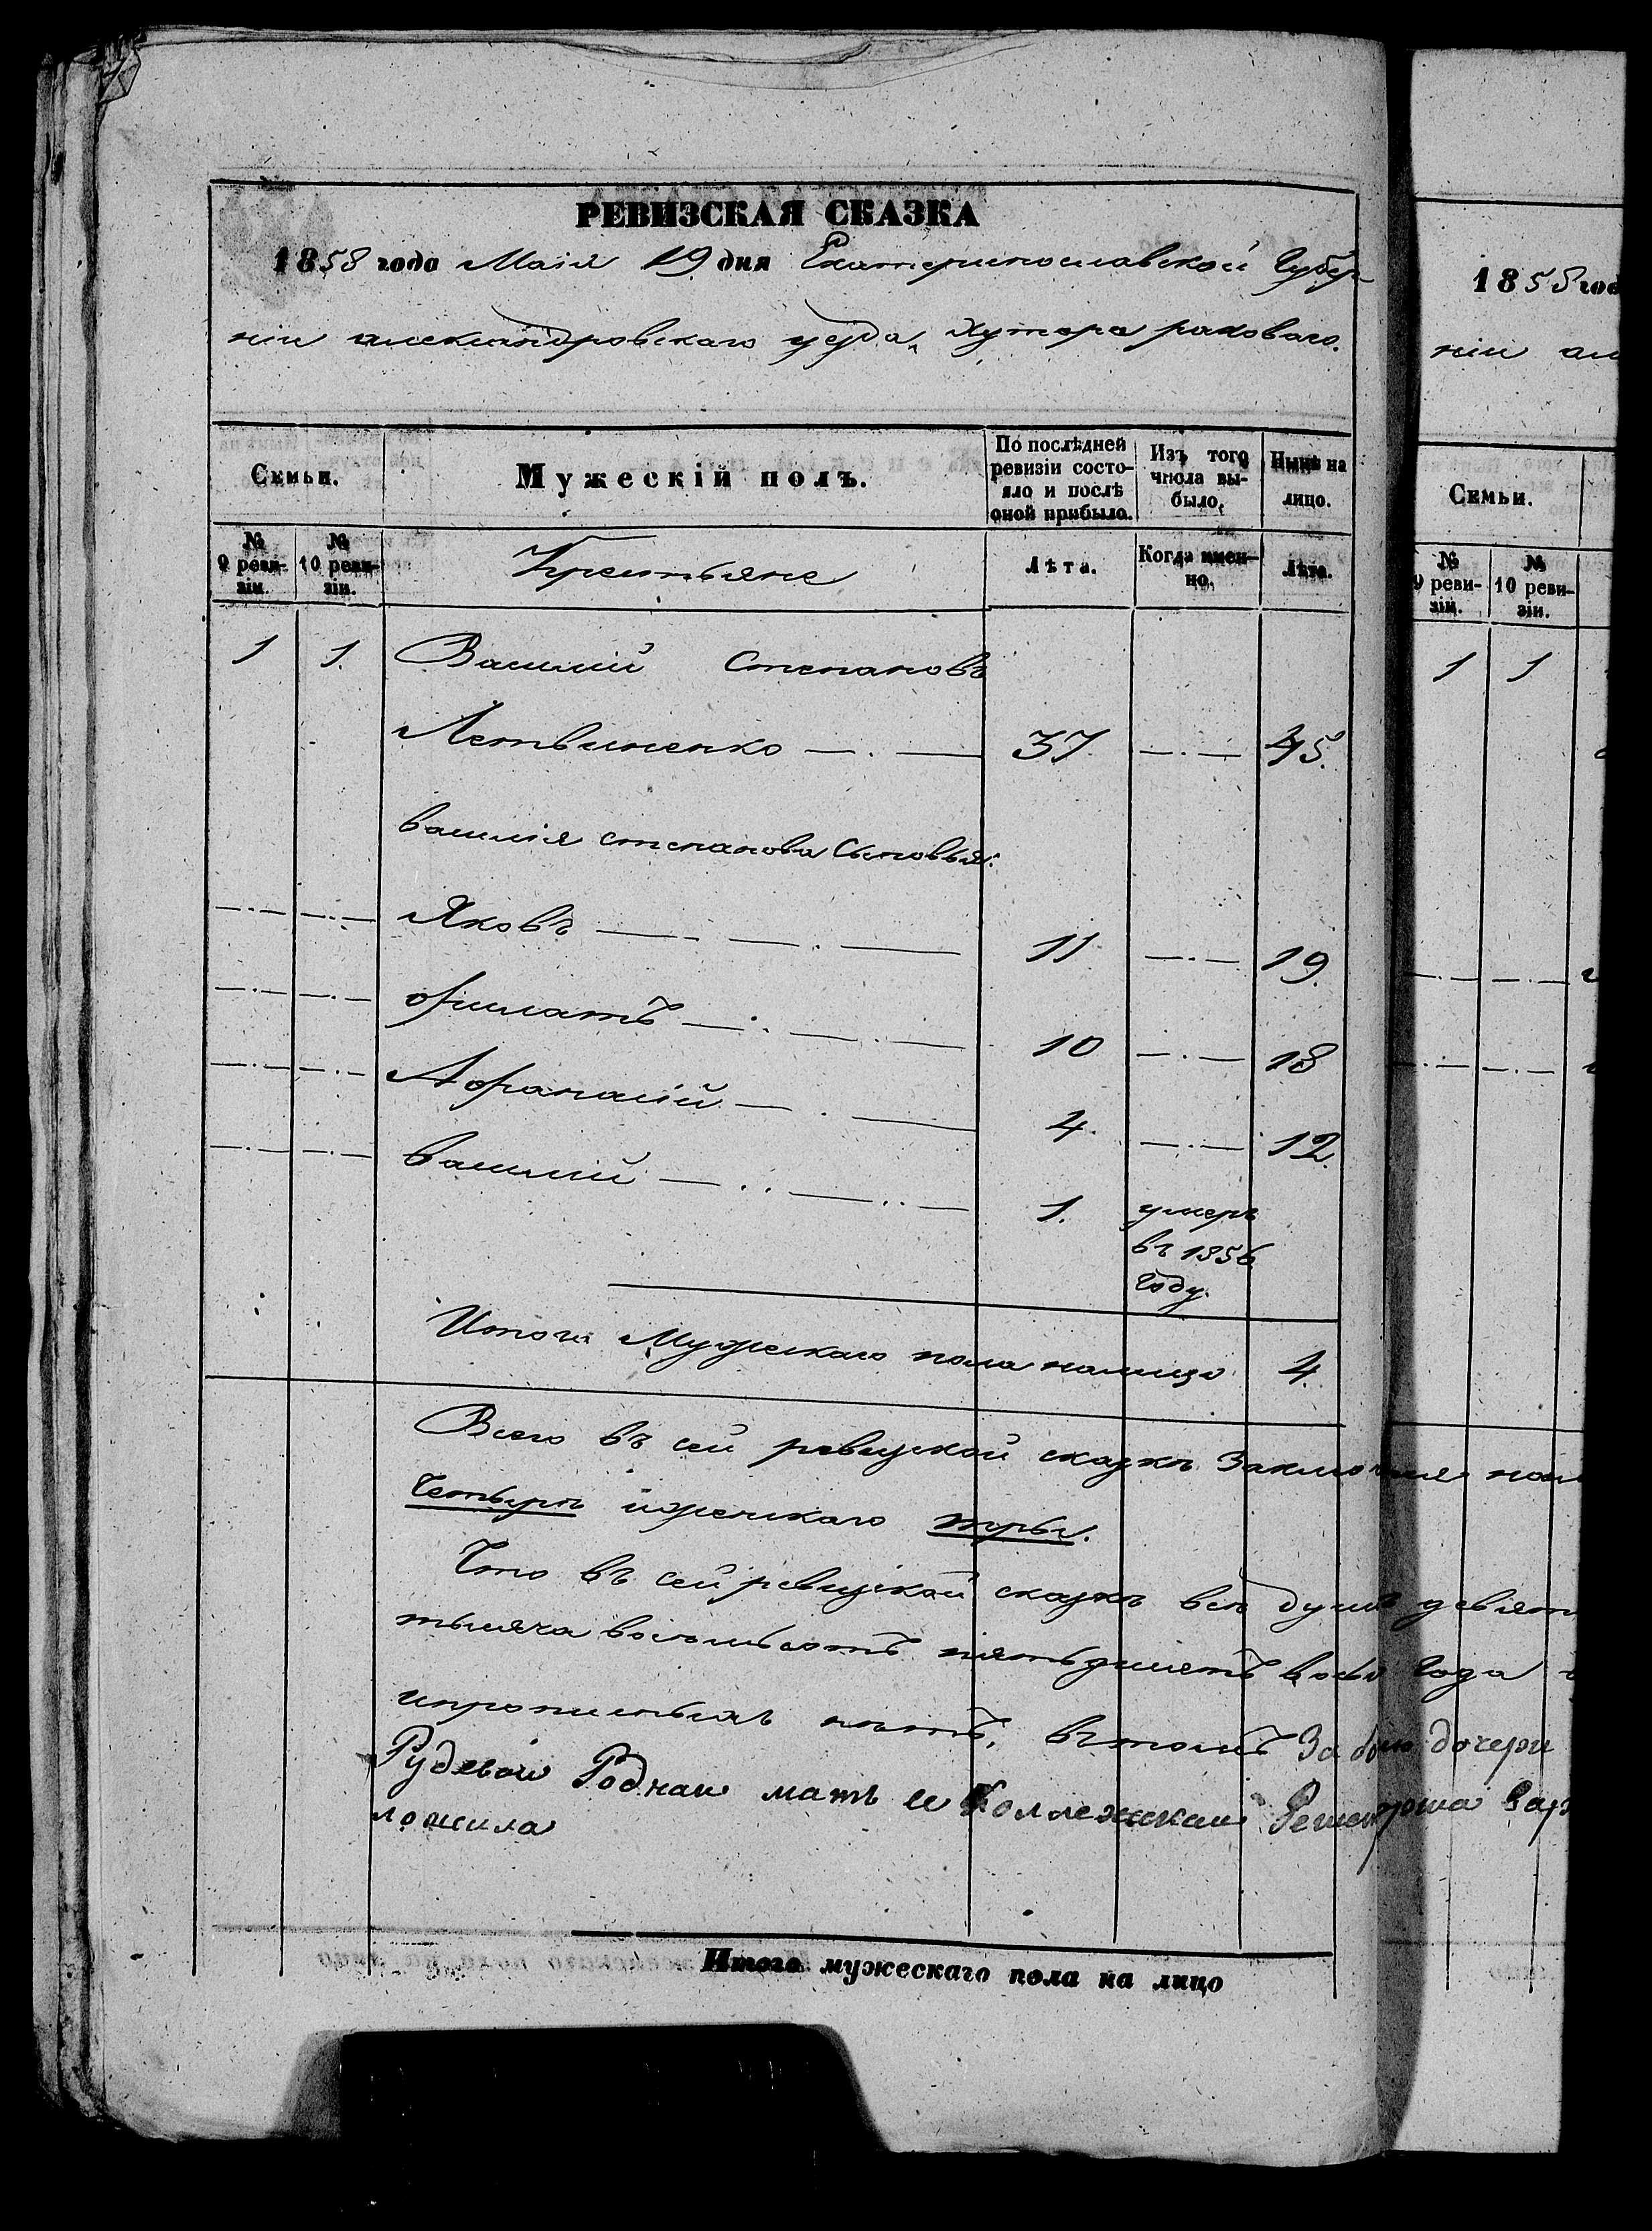 РЕВИЗСКАЯ СКАЗКА
1858 года Маія 19 дня Екатеринославской Губер-
ніи александровскаго уезда, Хутора раковаго.
Семьи.
Мужескій полъ.
По послѣдней ревизіи состо-яло и послѣ оной прибыло.
Изъ того числа вы-было,
Нынѣ на лицо.
№ 9 реви-зіи.
№ 10 реви-зіи.
Крестьяне
Лѣта.
Когда имен-но.
Лѣта.
1 1. Василій Степановъ
Летвиненко — . — 37. — . — 45.
василія степанова сыновья:
Яковъ — . — . — 11 — . — 19.
филатъ — . — . — 10 — . — 18
Афанасій — . — 4. — . — 12.
василій — . . — . . — 1. умеръ
въ 1856
году.
Итого Мужескаго пола налицо 4.
Всего въ сей ревизской сказкѣ
Четыре иженскаго тры.
Что въ сей ревизской сказкѣ всѣ душѣ
тысяча восемьсотъ пятьдесятъ года
нѣтъ, втомъ За дочери
Рудевои Роднаи мать ее Колежскаи
ложила
Итого мужескаго пола на лицо
1858 год
ніи ал
Семьи.
№ 9 реви-зіи.
№ 10 реви-зіи.
1 1